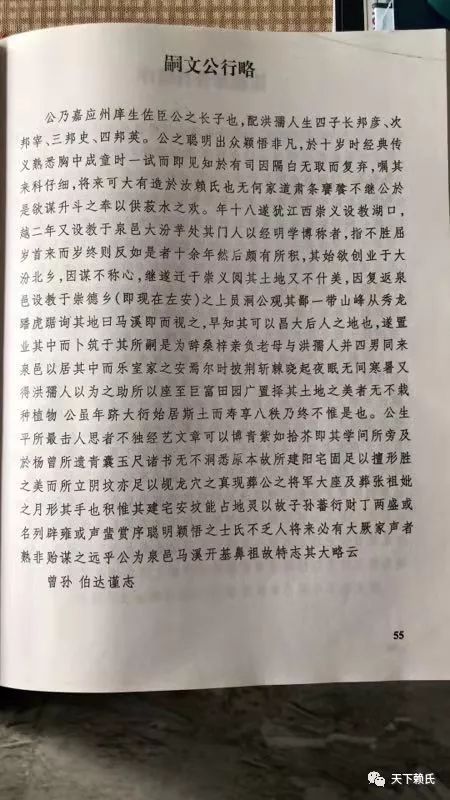 嗣文公行略
公乃嘉应州庠生佐臣公之长子也，配洪孺人生四子长邦彦、次
邦宰、三邦史、四邦英。公之聪明出众颖悟非凡，於十岁时经典传
义熟悉胸中成童时一试而即见知於有司因隔白无取而复弃，嘱其
来科仔细，将来可大有造於汝赖氏也无何家道萧条饔餮不继公於
是欲谋升斗之奉以供菽水之欢。年十八遂犹江西崇义设教湖口，
越二年又设教于泉邑大汾芋处其门人以经明学博称者，指不胜屈
岁首来而岁终则反如是者十余年然后颇有所积，其始欲创业于大
汾北乡，因谋不称心，继遂迁于崇义阅其土地又不什美，因复返泉
邑设教于崇德乡(即现在左安)之上员洞公观其鄱一带山峰从秀龙
蹯虎踞询其地曰马溪即而视之，早知其可以昌大后人之地也，遂置
业其中而卜筑于其所嗣是为辞桑梓亲负老母与洪孺人并四男同来
泉邑以居其中而乐室家之安焉尔时披荆斩棘晓起夜眠无问寒暑又
得洪孺人以为之助所以座至巨富田园广置择其土地之美者无不栽
种植物 公虽年跻大衍始居斯土而寿享八秩乃终不惟是也。公生
平所最击人思者不独经艺文章可以博青紫如拾芥即其学问所旁及
於杨曾所遗青囊玉尺诸书无不洞悉原本故所建阳宅固足以擅形胜
之美而所立阴坟亦足以觇龙穴之真现葬公之将军大座及葬张祖妣
之月形其手也积惟其建宅安坟能占地灵以故子孙蕃衍财丁两盛或
名列辟雍或声蜚赏序聪明颖悟之士氏不乏人将来必有大厥家声者
熟非贻谋之远乎公为泉邑马溪开基鼻祖故特志其大略云
曾孙 伯达谨志
55
天下赖氏